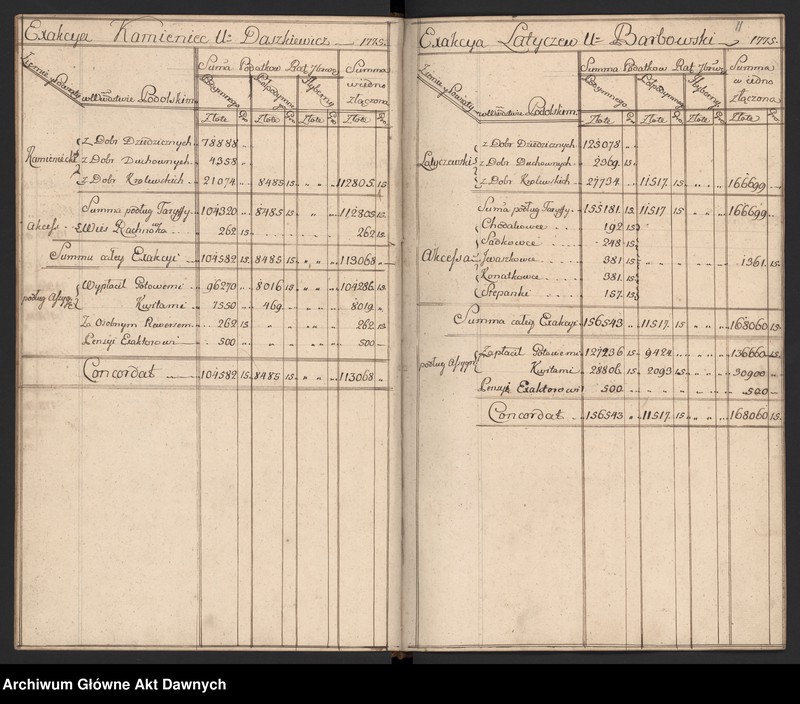 Exakcya Kamieniec Ur Daszkiewicz 1775.
Ziemie y Powiaty w Woiewodztwie Podolskim.
Suma Podatkow Rat 
Summa w iedno złączona
Podymnego Gr.
Złote Gr. Złote Gr. Złote Gr. Złote Gr.
z Dobr Dziedzicznych 78888 „
Kamieniecki z Dobr Duchownych 4358 „
z Dobr Krolewskich 21074 „ 8485 15 „ „ 112805 15
Summa podług Taryffy 104320 „ 8485 15 „ „ 112805 15
Akcess Wieś 262 15 262 15
Summa całey Exakcyi 104582 15 8485 15 „ „ 113068 „
Wypłacił Gotowemi 96270 „ 8016 15 „ „ 104286 15
podług Kwitami 7550 „ 469 „ „ 8019 „
Za Osobnym Rewersem 262 15 „ „ „ 262 15
Pensyi Exaktorowi 500 „ „ „ „ 500
Concordat 104582 15 8485 15 „ „ 113068 „
11
Exakcya Latyczew Ur Barbowski 1775.
Ziemie y Powiaty w Woiewodztwie Podolskim.
Summa Podatkow Rat
Summa w iedno złączona
Podymnego Gr.
Złote Gr. Złote Gr. Złote Gr. Złote Gr.
z Dobr Dziedzicznych 125078 „
Latyczewski z Dobr Duchownych 2369 15
z Dobr Krolewskich 27734 „ 11517 15 „ „ 166699
Suma podług Taryffy 155181 15 11517 15 „ „ 166699
Chodakowce 192 15
Sadkowce 248 15
Akcessa Iwaszkowce 381 15 1361 15
Konatkowce 381 15
Stepanki 157 15
Summa całey Exakcyi 156543 „ 11517 15 „ „ 168060 15
Zapłacił Gotowemi 127236 15 9424 „ „ 136660 15
podług Kwitami 28806 15 2093 15 „ „ 30900
Pensyi Exaktorowi 500 „ „ „ „ 500
Concordat 156543 „ 11517 15 „ „ 168060 15
Archiwum Główne Akt Dawnych